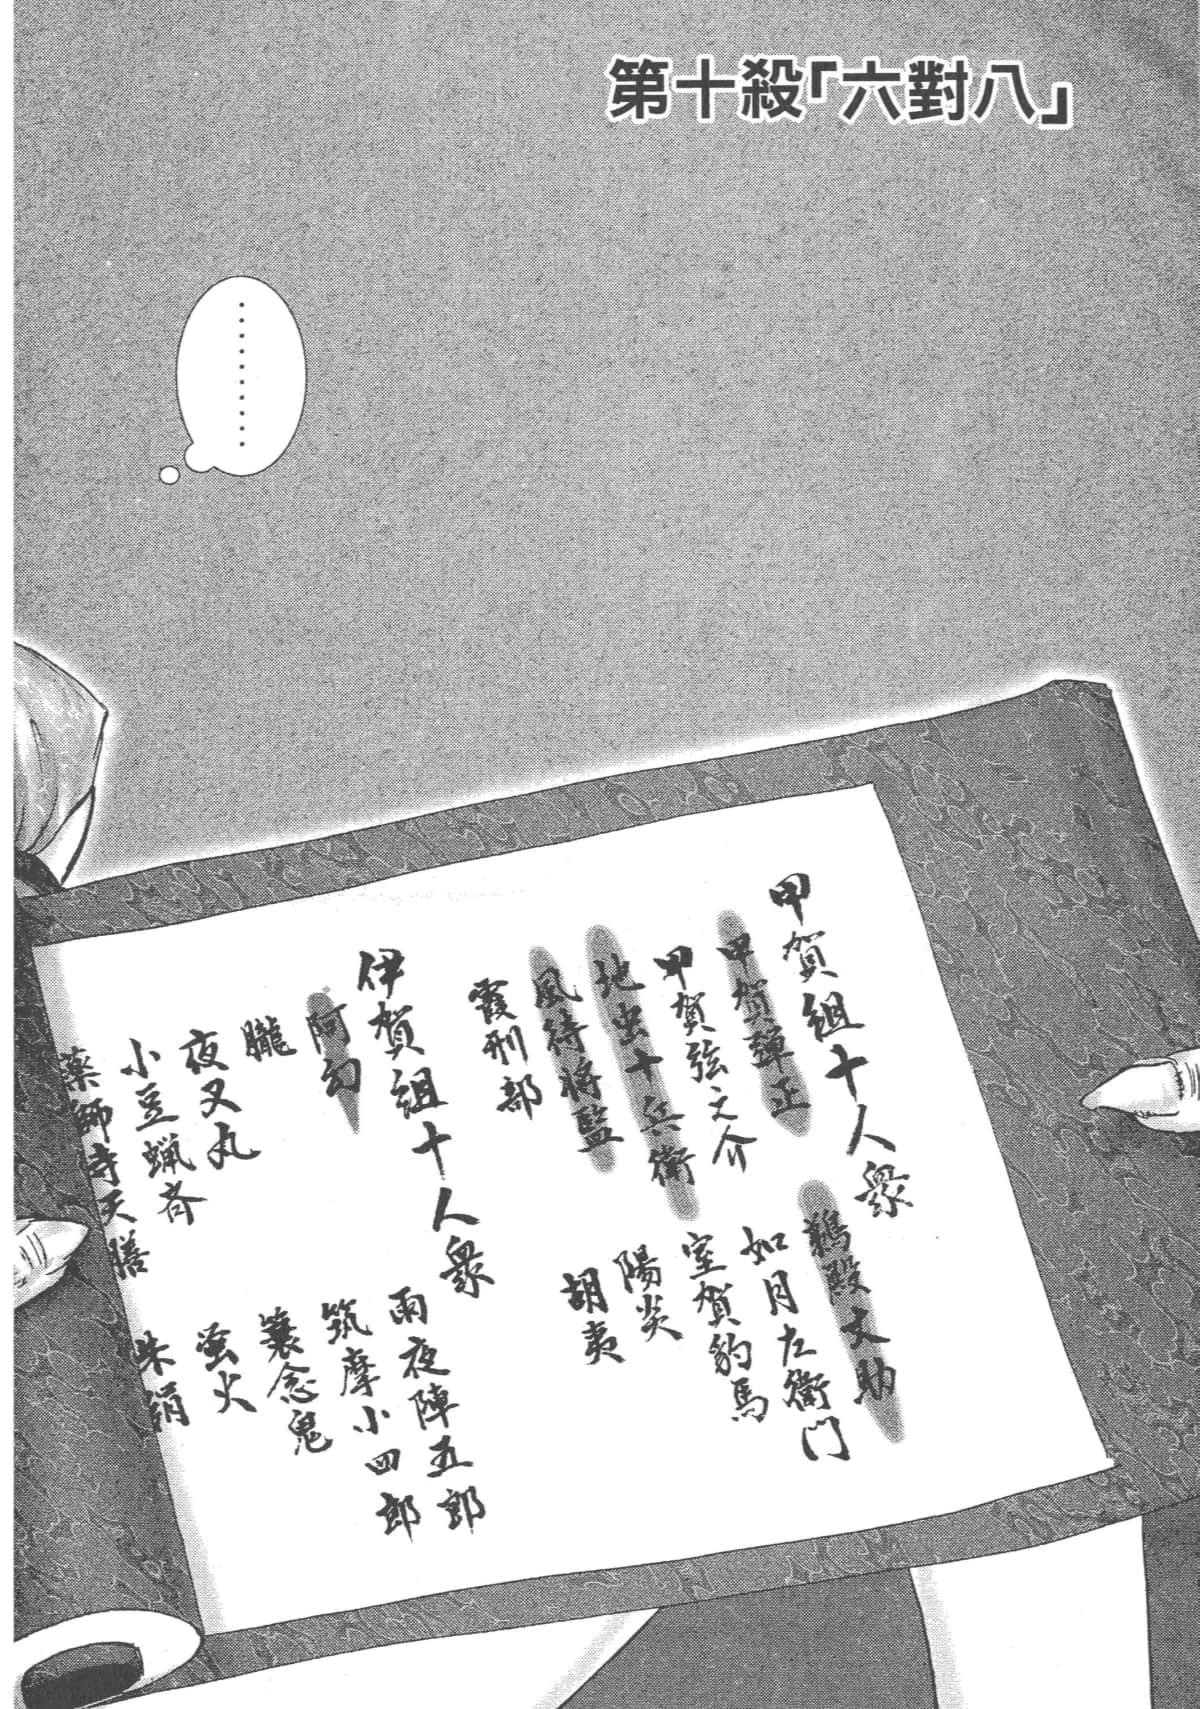 第十殺「六對八」
………
甲賀組十人衆
甲賀弾正
甲賀弦之介
地虫十兵衛
風待将監
霞刑部
鵜殿丈助
如月左衛門
室賀豹馬
陽炎
胡夷
伊賀組十人衆
阿幻
朧
夜叉丸
小豆蝋斉
薬師寺天膳
雨夜陣五郎
筑摩小四郎
蓑念鬼
蛍火
朱絹